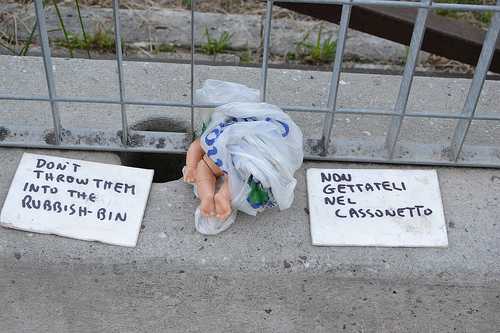 DON'T
THROW THEM
INTO THE
RUBBISH-BIN
NON
GETTATELI
NEL
CASSONETTO